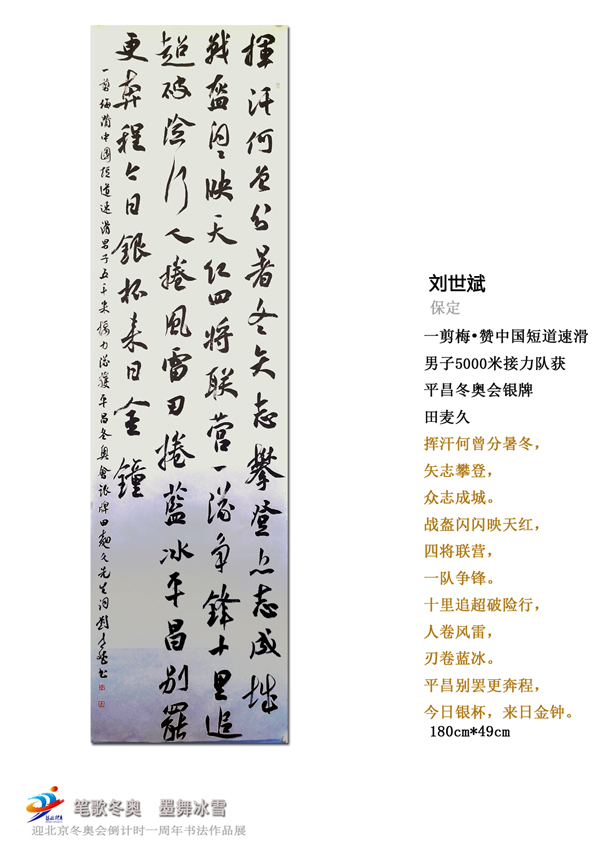 揮汗何曾分暑冬矢志攀登众志成城
战盔闪闪映天红四将联营一隊争鋒十里追
超破险行人捲風雷刃捲藍冰平昌别罷
更奔程今日銀杯来日金鐘
一剪梅赞中國短道速滑男子五千米接力隊獲平昌冬奥會银牌田麵久先生词劉世斌书
刘世斌
保定
一剪梅•赞中国短道速滑
男子5000米接力队获
平昌冬奥会银牌
田麦久
挥汗何曾分暑冬，
矢志攀登，
众志成城。
战盔闪闪映天红，
四将联营，
一队争锋。
十里追超破险行，
人卷风雷，
刃卷蓝冰。
平昌别罢更奔程，
今日银杯，来日金钟。
180cm*49cm
笔歌冬奥 墨舞冰雪
迎北京冬奥会倒计时一周年书法作品展